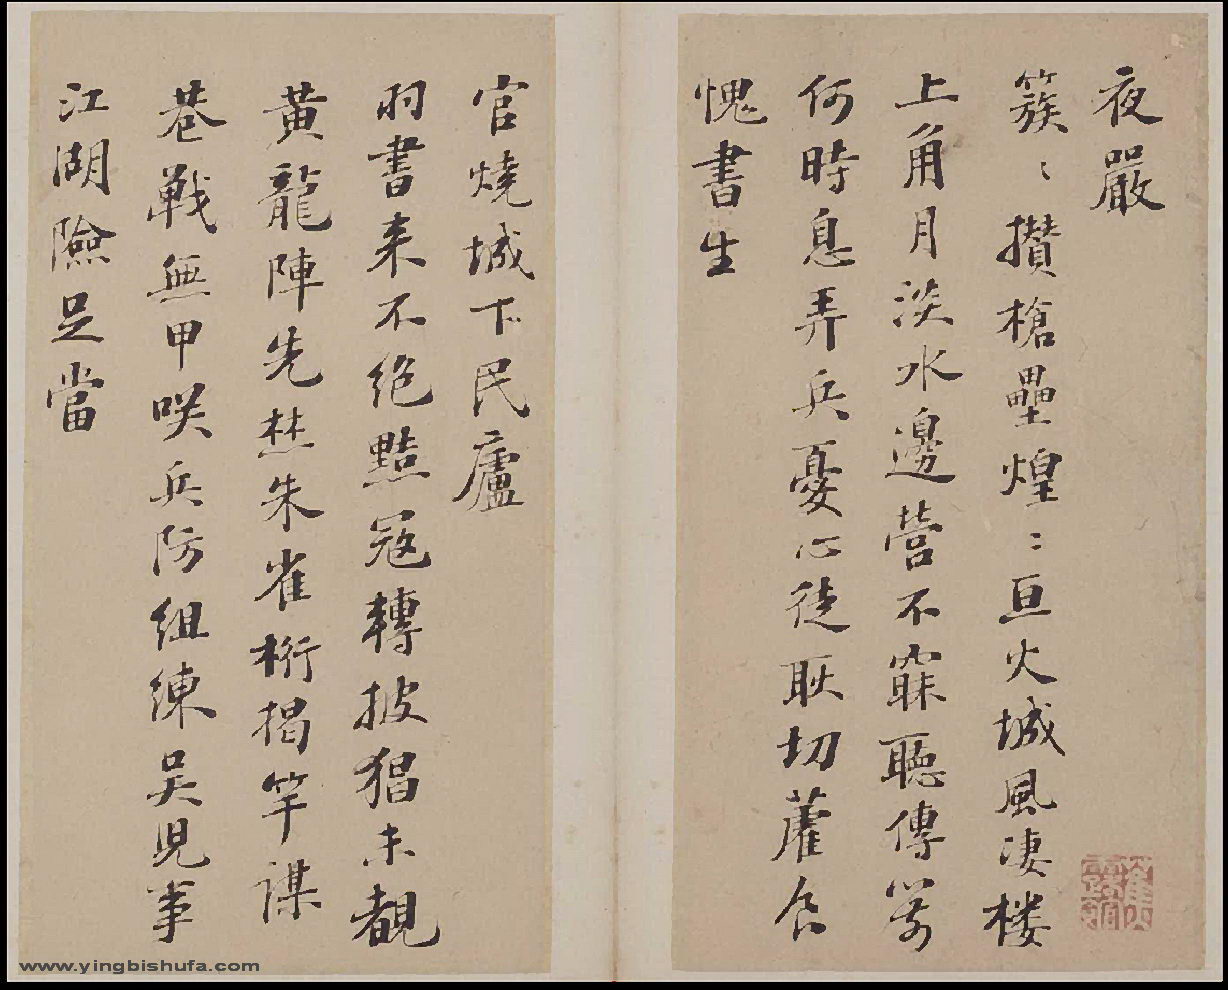 夜嚴
簇〻攢槍壘煌〻亘火城風淒樓
上角月淡水邊營不寐聽傳箭
何時息弄兵憂心徒耿切藿食
愧書生
官燒城下民廬
羽書來不絕黠寇轉披猖未覩
黃龍陣先焚朱雀桁揭竿謀
巷戰無甲咲兵防組練吳兒事
江湖險足當
www.yingbishufa.com